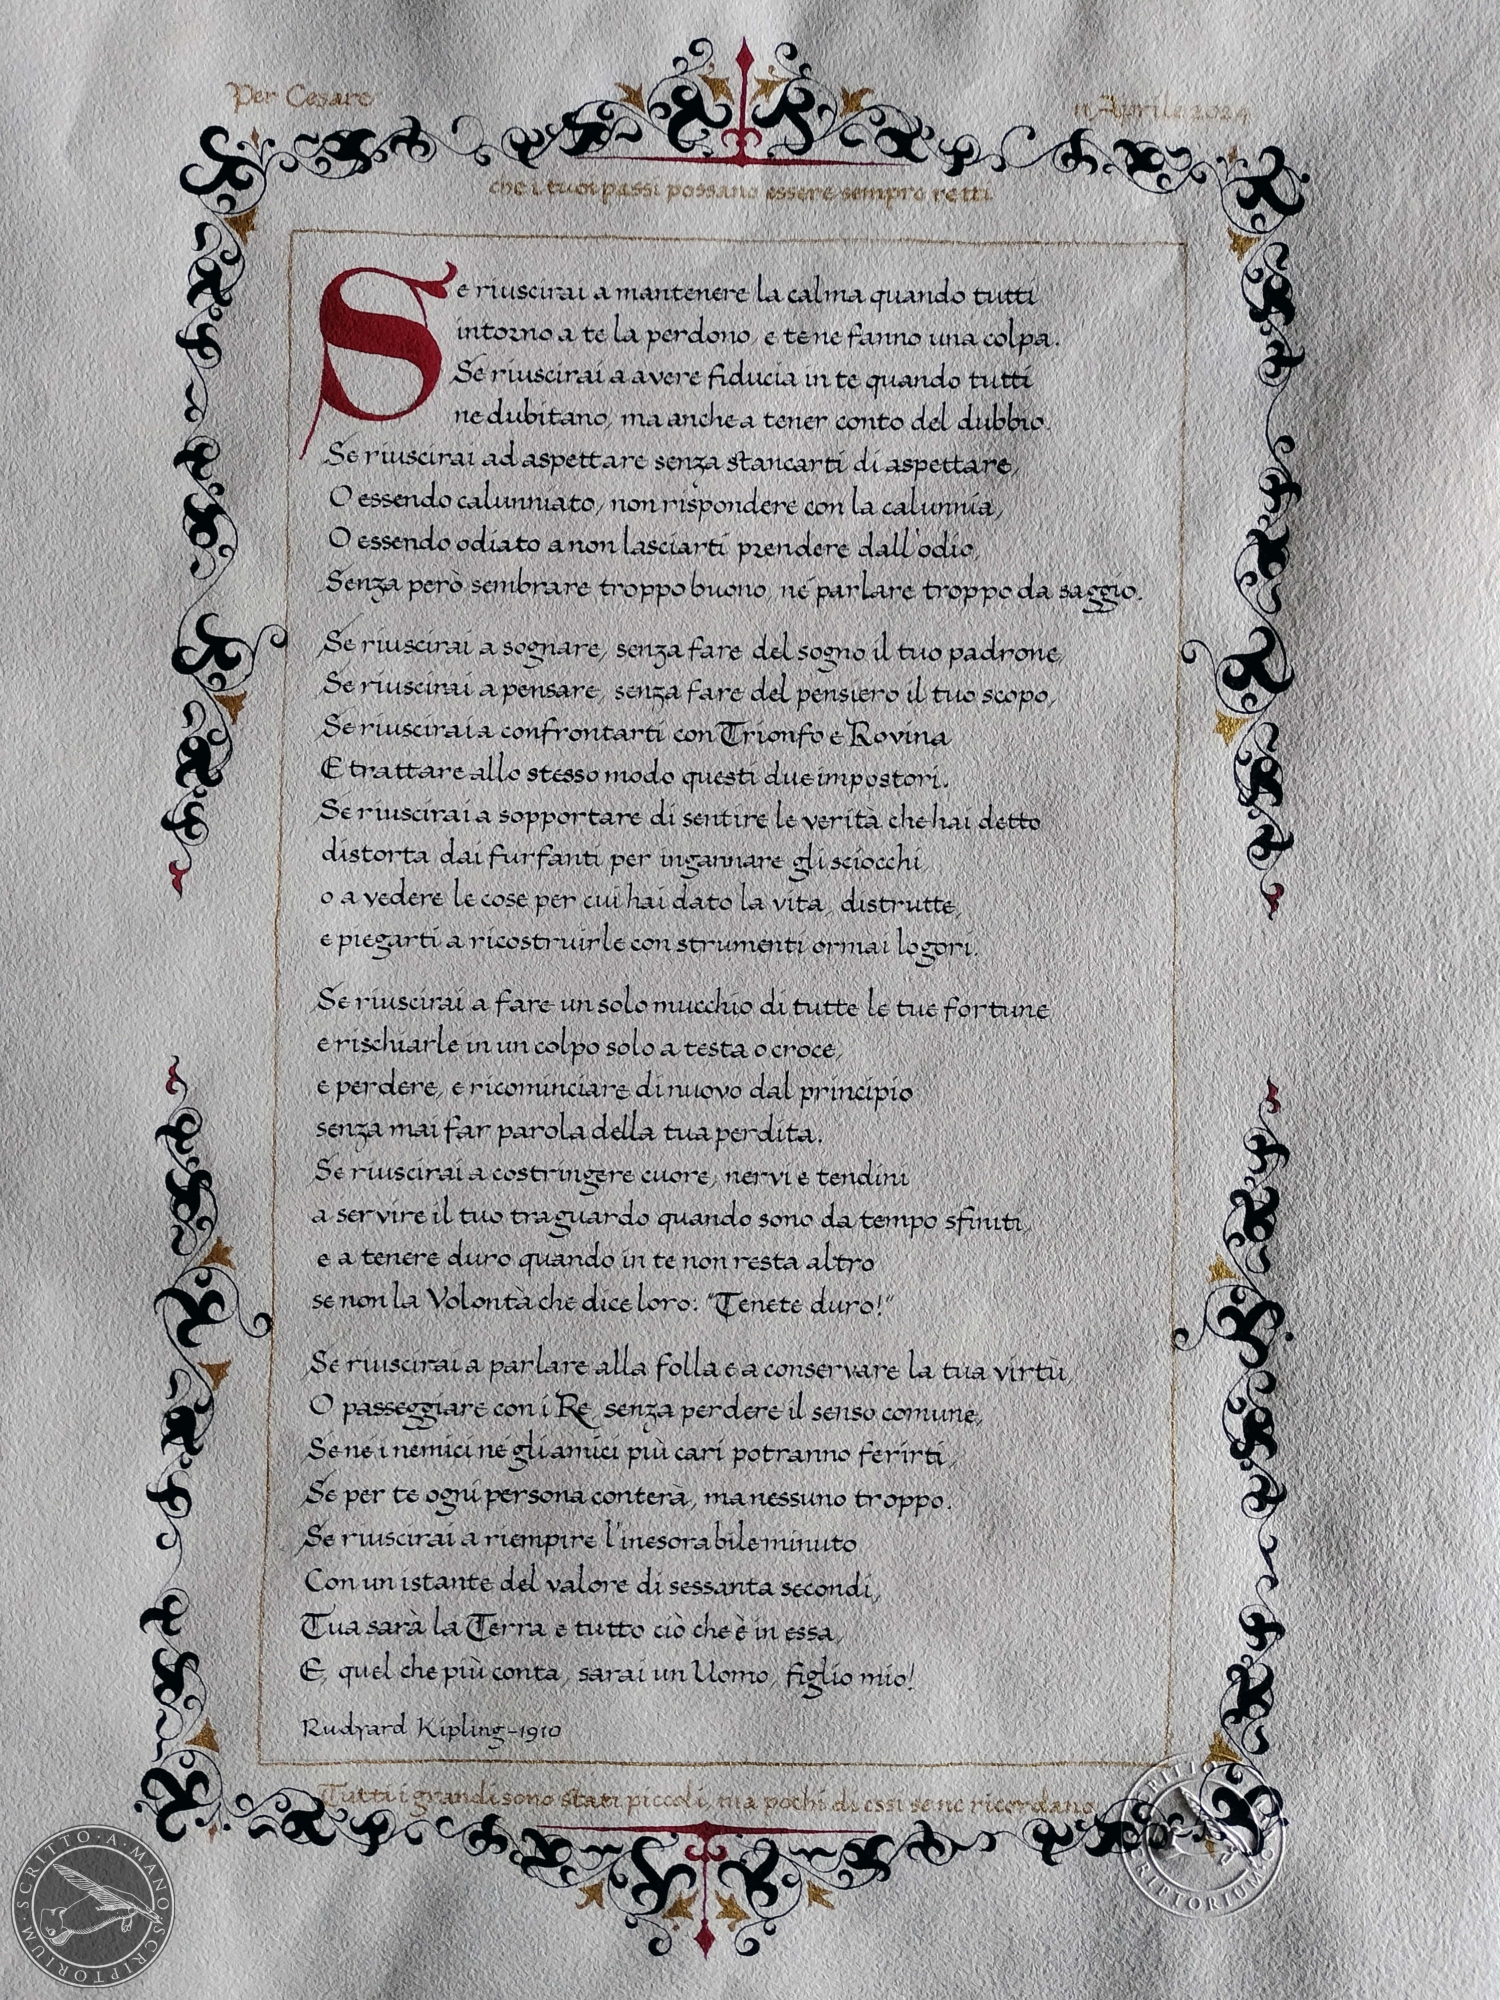 Per Cesare
11 Aprile 2024
che i tuoi passi possano essere sempre retti
Se riuscirai a mantenere la calma quando tutti
intorno a te la perdono, e te ne fanno una colpa.
Se riuscirai a avere fiducia in te quando tutti
ne dubitano, ma anche a tener conto del dubbio.
Se riuscirai ad aspettare senza stancarti di aspettare,
O essendo calunniato, non rispondere con la calunnia,
O essendo odiato a non lasciarti prendere dall'odio,
Senza però sembrare troppo buono, né parlare troppo da saggio.
Se riuscirai a sognare, senza fare del sogno il tuo padrone,
Se riuscirai a pensare, senza fare del pensiero il tuo scopo,
Se riuscirai a confrontarti con Trionfo e Rovina
E trattare allo stesso modo questi due impostori.
Se riuscirai a sopportare di sentire le verità che hai detto
distorta dai furfanti per ingannare gli sciocchi,
o a vedere le cose per cui hai dato la vita, distrutte,
e piegarti a ricostruirle con strumenti ormai logori.
Se riuscirai a fare un solo mucchio di tutte le tue fortune
e rischiarle in un colpo solo a testa o croce,
e perdere, e ricominciare di nuovo dal principio
senza mai far parola della tua perdita.
Se riuscirai a costringere cuore, nervi e tendini
a servire il tuo traguardo quando sono da tempo sfiniti,
e a tenere duro quando in te non resta altro
se non la Volontà che dice loro: "Tenete duro!"
Se riuscirai a parlare alla folla e a conservare la tua virtù,
O passeggiare con i Re, senza perdere il senso comune,
Se ne i nemici né gli amici più cari potranno ferirti,
Se per te ogni persona conterà, ma nessuno troppo.
Se riuscirai a riempire l'inesorabile minuto
Con un istante del valore di sessanta secondi,
Tua sarà la Terra e tutto ciò che è in essa,
E, quel che più conta, sarai un Uomo, figlio mio!
Rudyard Kipling-1910
Tutti i grandi sono stati piccoli, ma pochi di essi se ne ricordano
SCRITTO·A·MANO
SCRIPTORIUM